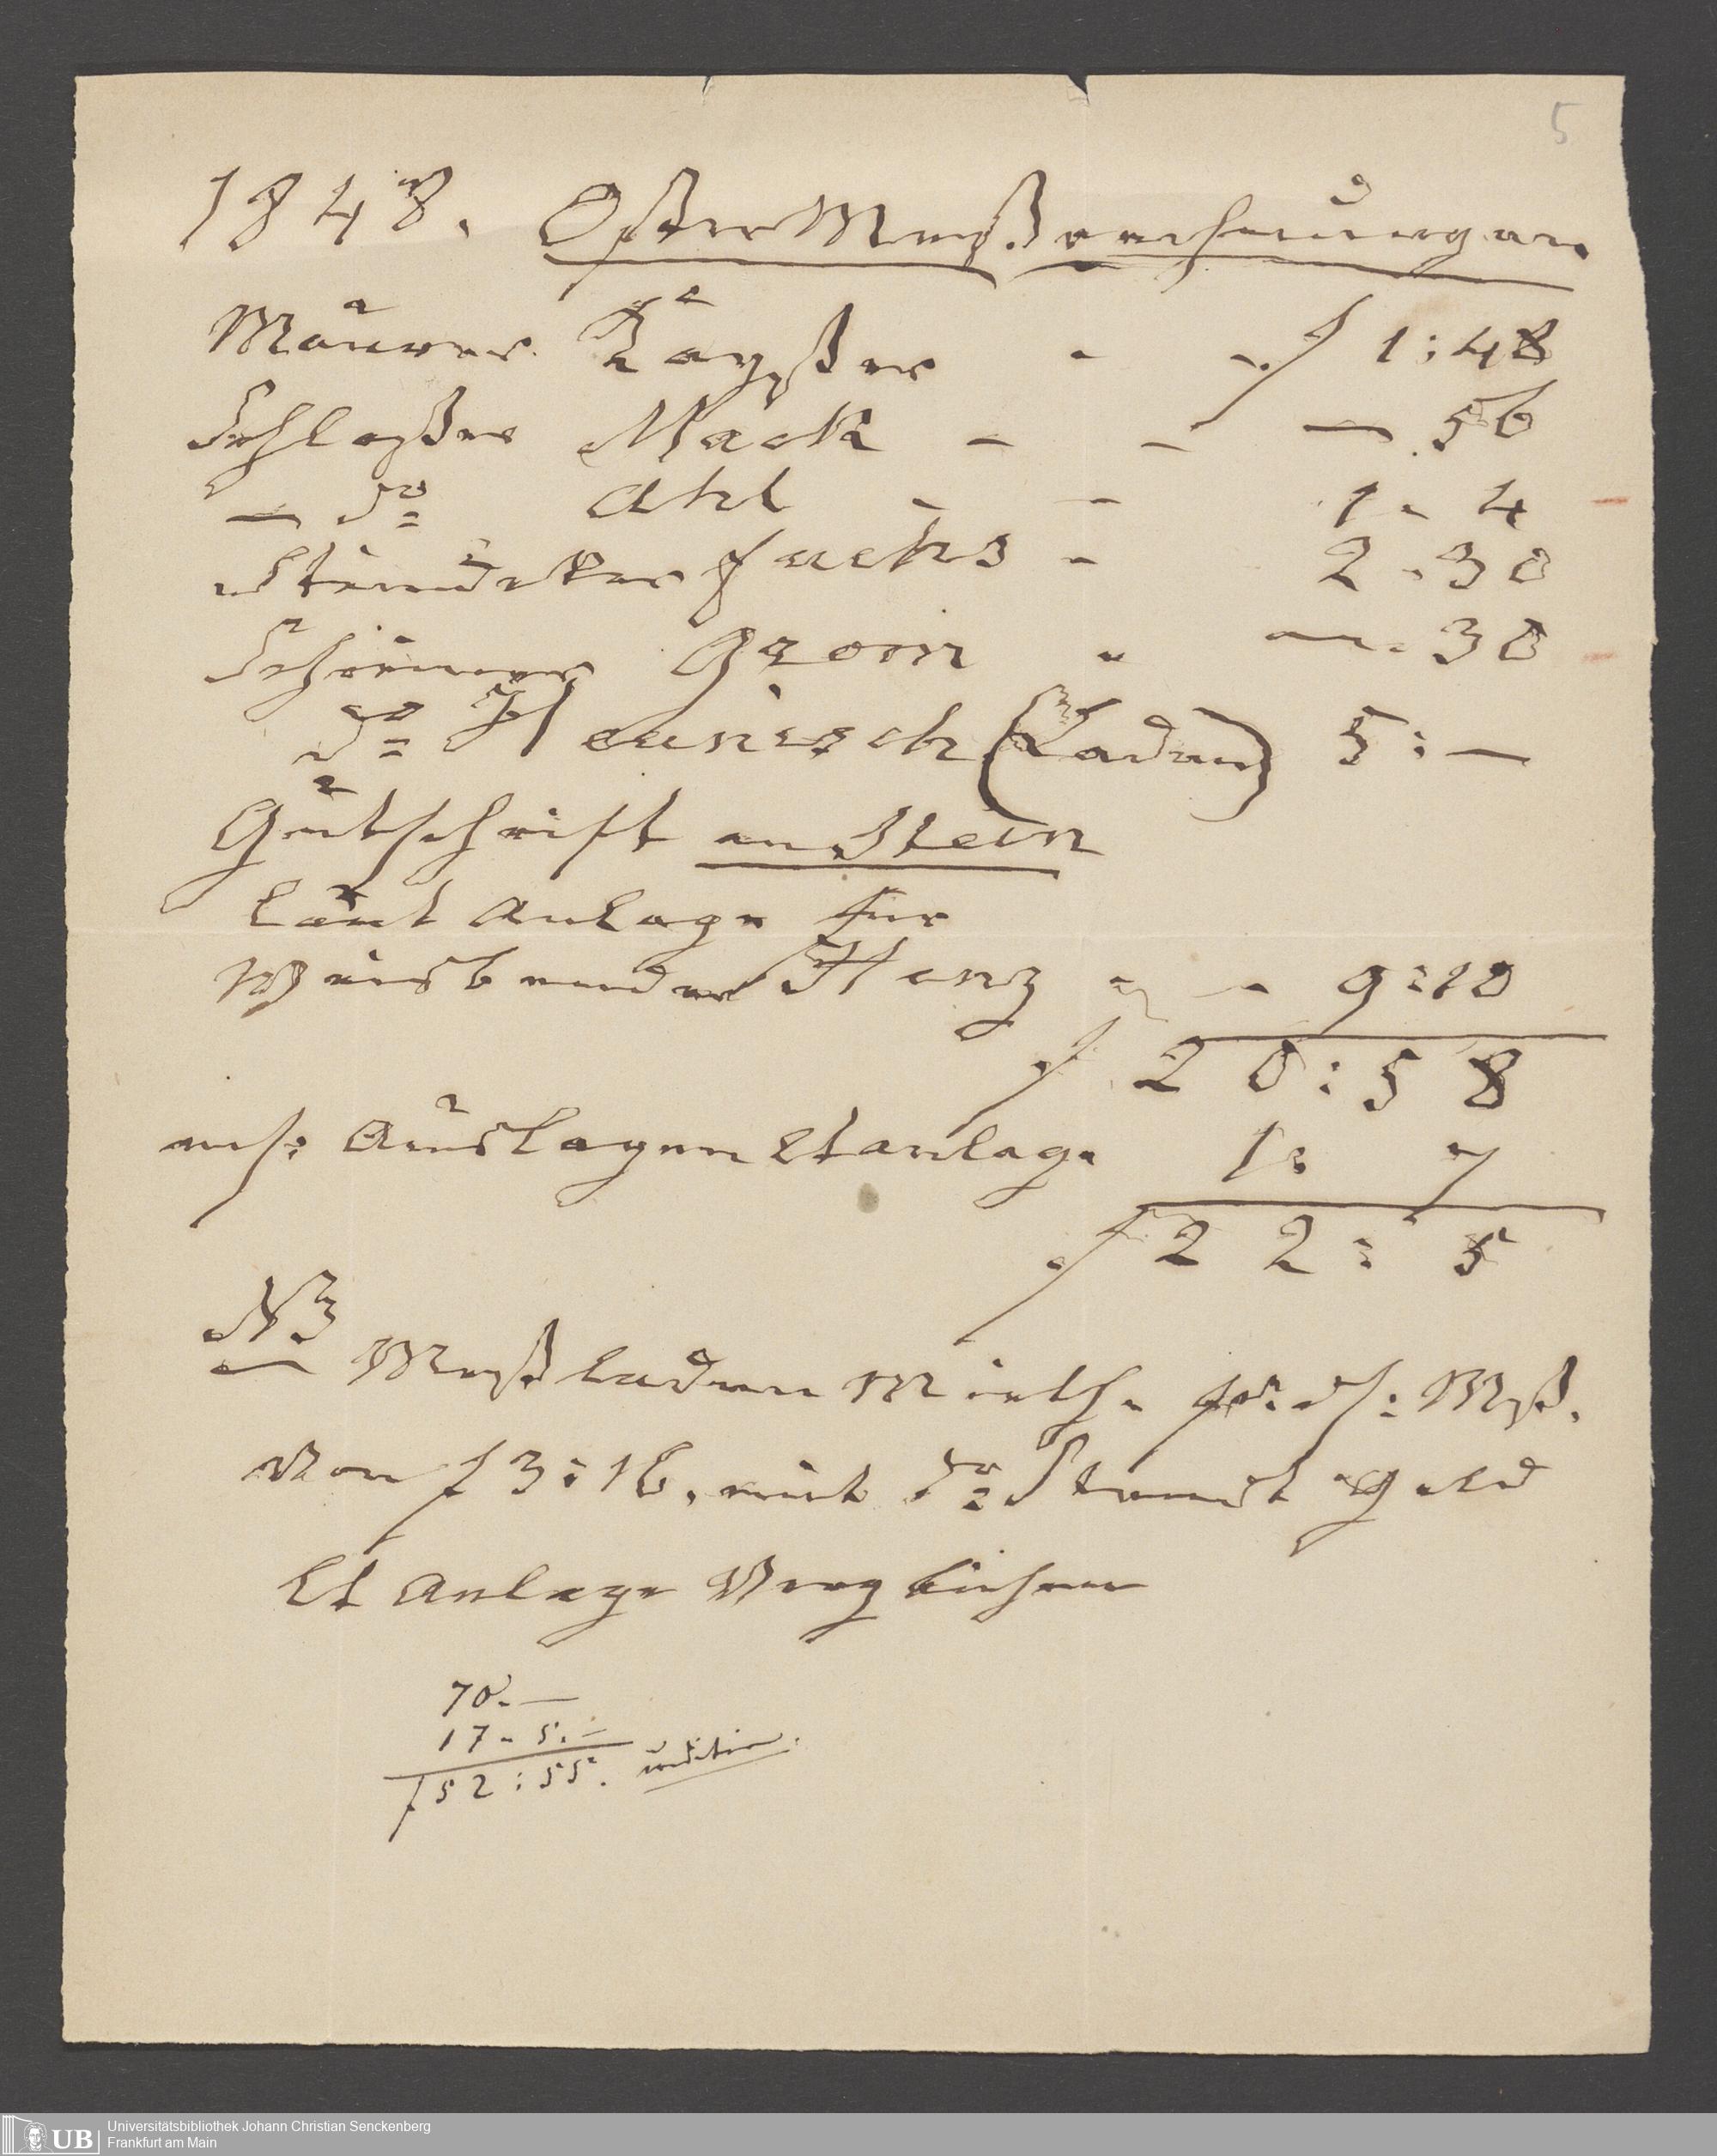 5
1848. OsterMeßrechnungen.
Maurer Kayßer - - f 1:48
Schloßer Mack - - — 56
— do Ahl - - 1 - 4
Fuchs - 2 - 30
Schirmer Grom " — 30
do Haunisch (Laden) 5:—
Gutschrift an Stein
laut Anlage für
Weisbender Henz " - 9:10
f 20:58
m/: Auslagen Lt anlage 1: 7
f 22: 5
NB
Meßladen Miethe pr: d/: Mß.
Von f 3:16. mit do Standt geld
Lt Anlage Verglichen
70.—
17 - 5.—
f 52:55.
Universitätsbibliothek Johann Christian Senckenberg
UB Frankfurt am Main